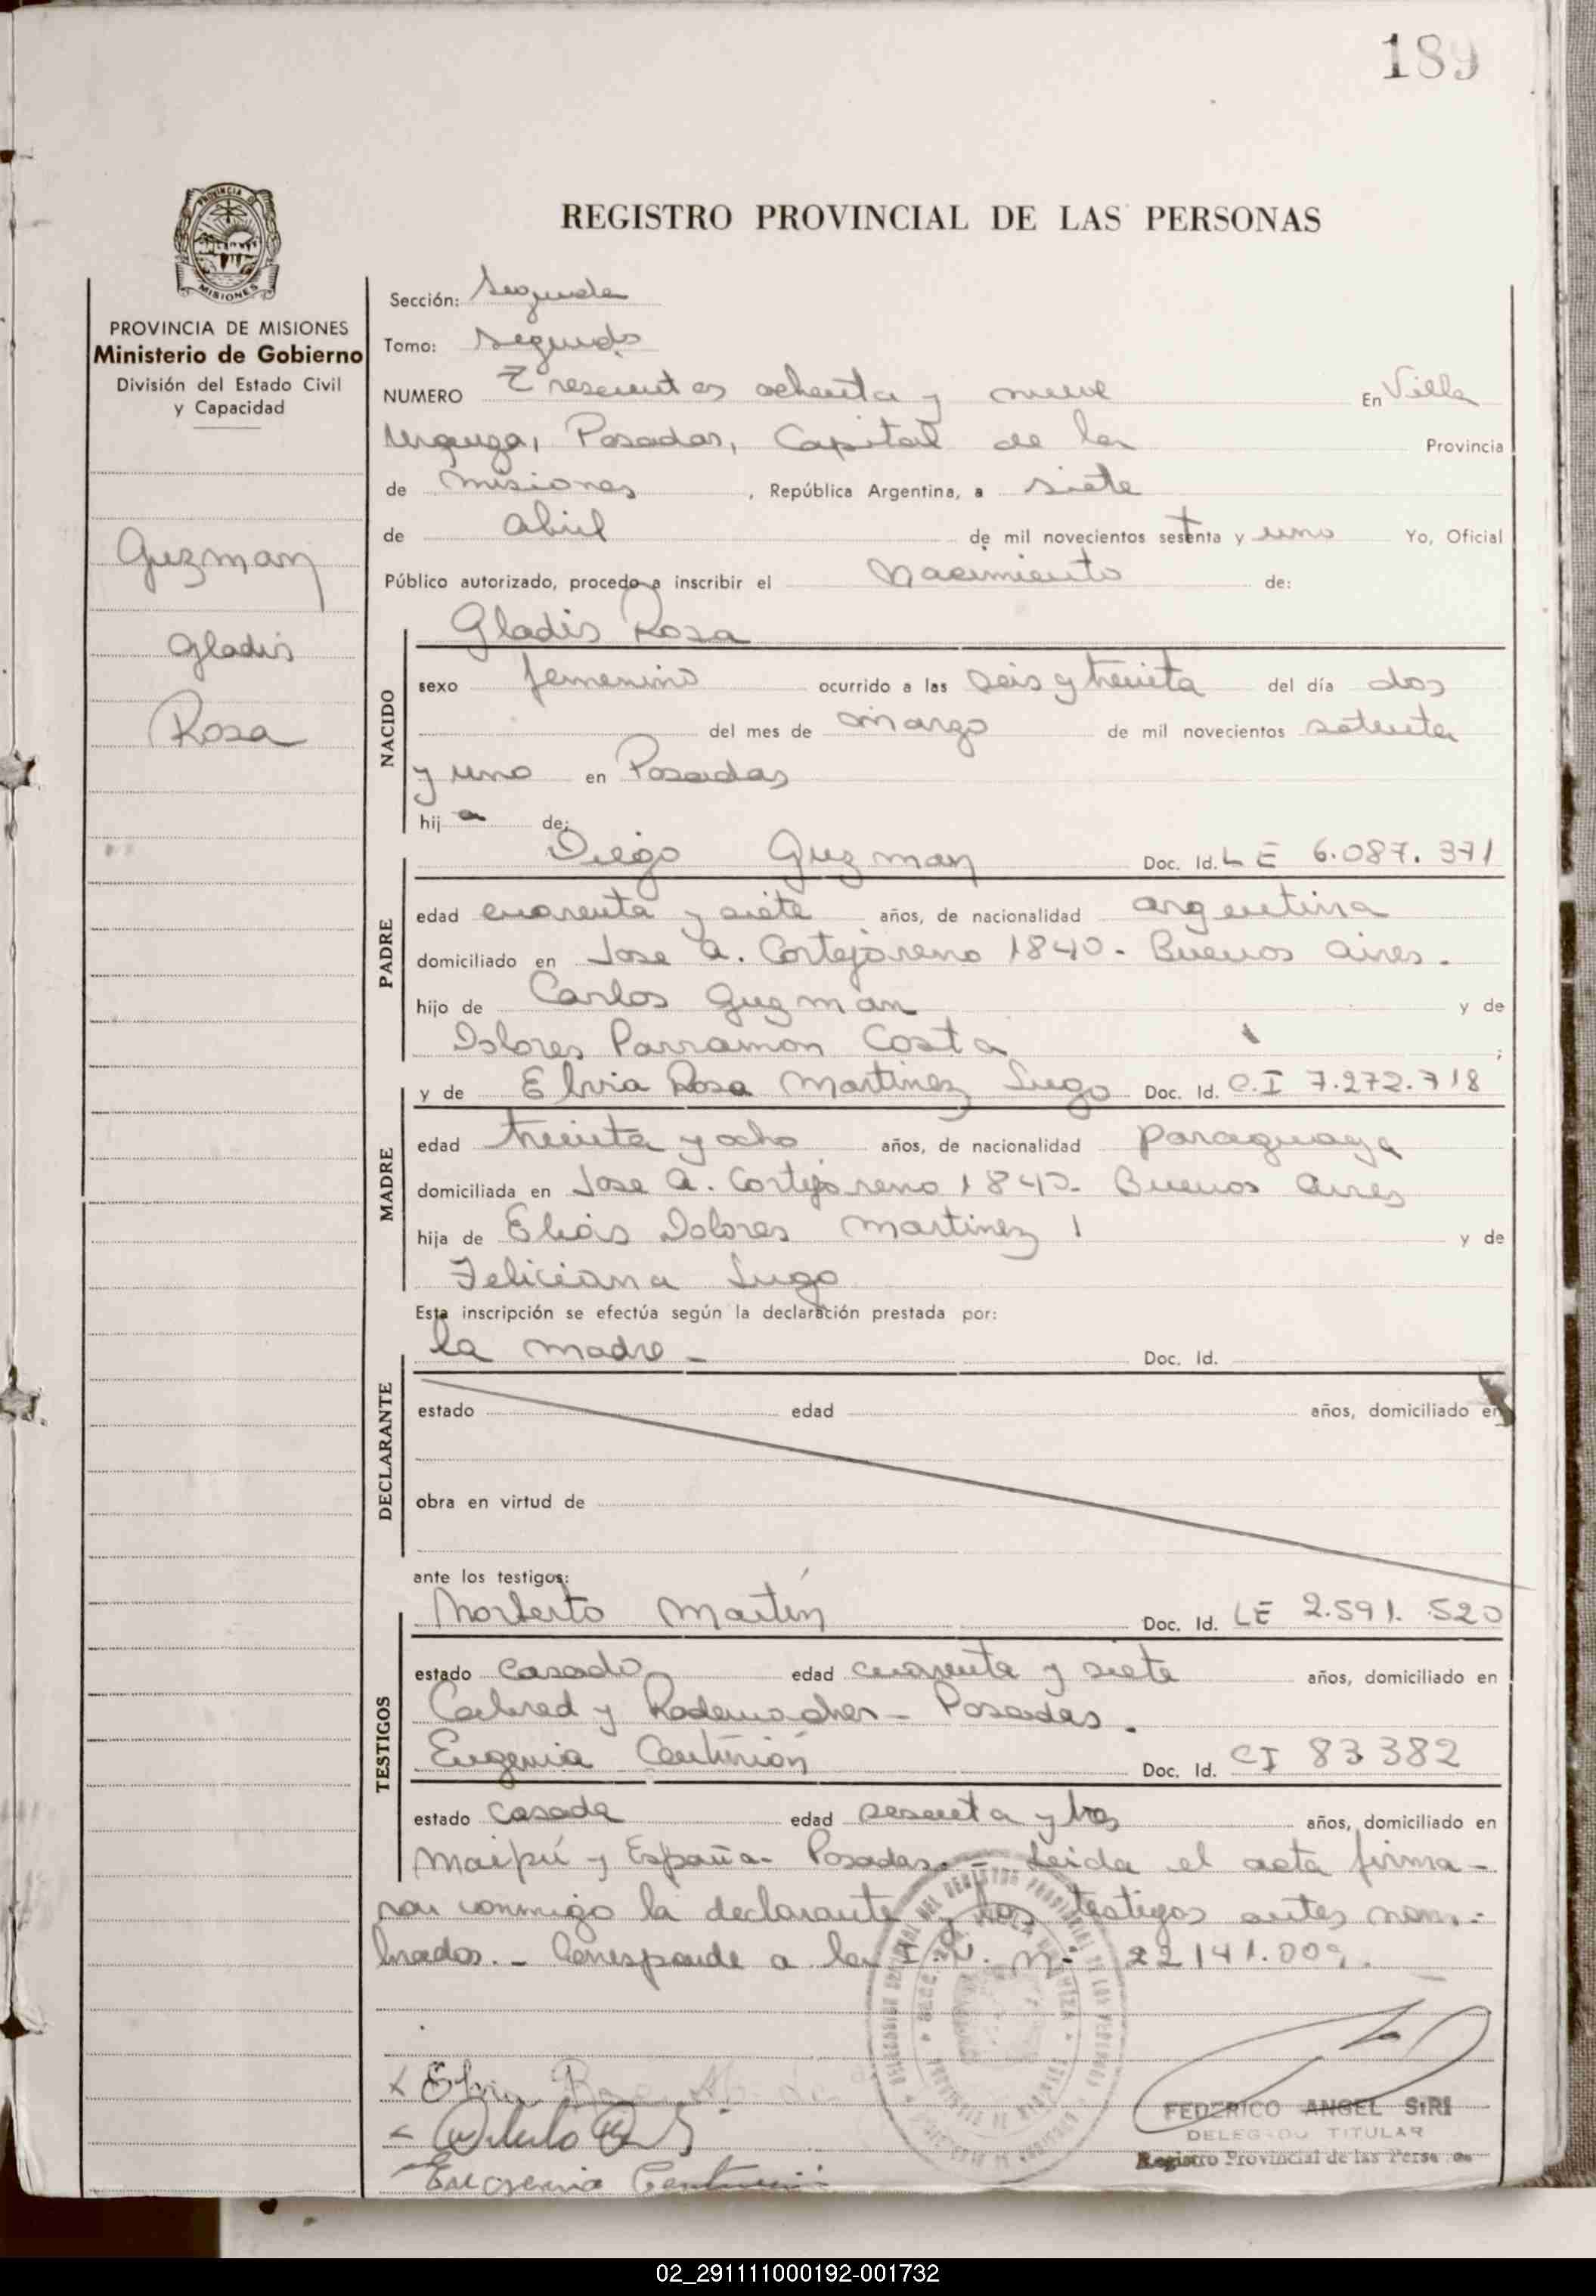 189
PROVINCIA DE MISIONES
MISIONES
Ministerio de Gobierno
División del Estado Civil
y Capacidad
Guzman
Gladis
Rosa
REGISTRO PROVINCIAL DE LAS PERSONAS
Sección: Segunda
Tomo: Segundo
NUMERO Trescientos ochenta y nueve En Villa
Urquiza, Posadas, Capital de la Provincia
de Misiones, República Argentina, a siete
de Abril de mil novecientos setenta y uno Yo, Oficial
Público autorizado, procedo a inscribir el Nacimiento de:
Gladis Rosa
NACIDO
sexo femenino ocurrido a las seis y treinta del día dos
del mes de marzo de mil novecientos setenta
y uno en Posadas
hija de:
Diego Guzman Doc. Id. LE 6.087.371
PADRE
edad cuarenta y siete años, de nacionalidad argentina
domiciliado en Jose A. Cortejarena 1840 - Buenos Aires.
hijo de Carlos Guzman y de
Dolores Parramon Costa ;
y de Elvia Rosa Martinez Lugo Doc. Id. C.I 7.272.718
MADRE
edad treinta y ocho años, de nacionalidad paraguaya
domiciliada en Jose A. Cortejarena 1840 - Buenos Aires
hija de Elias Dolores Martinez y de
Feliciana Lugo
Esta inscripción se efectúa según la declaración prestada por:
la madre - Doc. Id.
DECLARANTE
estado edad años, domiciliado en
obra en virtud de
ante los testigos:
Norberto Martin Doc. Id. LE 2.591.520
TESTIGOS
estado casado edad cuarenta y siete años, domiciliado en
Cabred y Rademacher - Posadas.
Eugenia Centurión Doc. Id. CI 83382
estado casada edad sesenta y tres años, domiciliado en
Maipú y España - Posadas. - Leida el acta firma-
ron conmigo la declarante y los testigos antes nom-
brados. - Corresponde a la I.N. Nº 22141.009.
Elvia Rosa M. de
Eugenia Centurión
FEDERICO ANGEL SIRI
DELEGADO TITULAR
Registro Provincial de las Personas
02_291111000192-001732